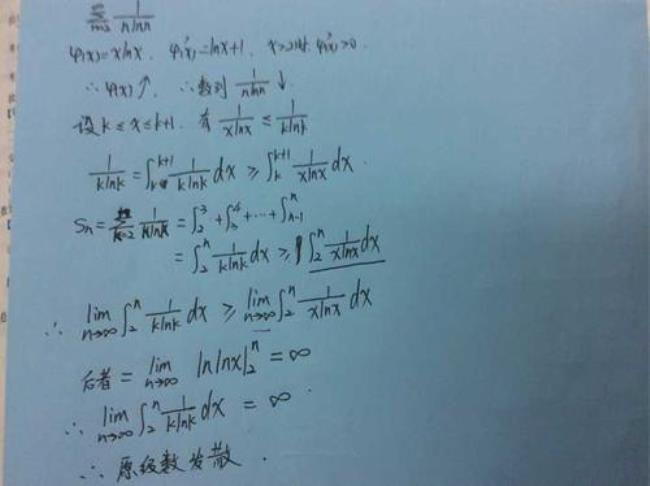 ∑ 1/(n ln n)
φ(x)=x ln x. φ'(x)=ln x+1. x>2时 φ'(x)>0.
∴ φ(x)↑. ∴数列 1/(n ln n) ↓.
设 k≤x≤k+1. 有 1/(x ln x) ≤ 1/(k ln k)
1/(k ln k) = ∫_k^{k+1} 1/(k ln k) dx ≥ ∫_k^{k+1} 1/(x ln x) dx.
Sn = ∑_{k=2}^n 1/(k ln k) = ∫_2^3 + ∫_3^4 + ⋯ + ∫_{n-1}^n
= ∫_2^n 1/(k ln k) dx ≥ ∫_2^n 1/(x ln x) dx
∴ lim_{n→∞} ∫_2^n 1/(k ln k) dx ≥ lim_{n→∞} ∫_2^n 1/(x ln x) dx
后者 = lim_{n→∞} ln ln x |_2^n = ∞
∴ lim_{n→∞} ∫_2^n 1/(k ln k) dx = ∞.
∴ 原级数发散.